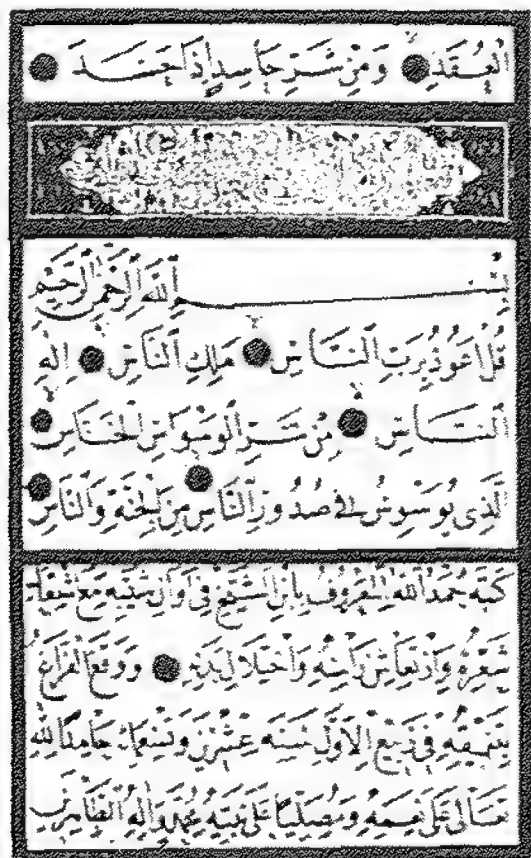 الْعُقَدِ وَمِنْ شَرِّ حَاسِدٍ إِذَا حَسَدَ
بِسْمِ اللَّهِ الرَّحْمٰنِ الرَّحِيمِ
قُلْ أَعُوذُ بِرَبِّ النَّاسِ مَلِكِ النَّاسِ إِلٰهِ
النَّاسِ مِنْ شَرِّ الْوَسْوَاسِ الْخَنَّاسِ
الَّذِي يُوَسْوِسُ فِي صُدُورِ النَّاسِ مِنَ الْجِنَّةِ وَالنَّاسِ
كتبه حمد الله المعروف بابن الشيخ في اوان شيبه مع
شعره وارتعاش راسه واختلال يديه ووقع الفراغ
بتنميقه في ربيع الاول سنه عشرين وتسعمائة حامدا لله
تعالى على نعمه ومصليا على نبيه محمد واله الطاهرين